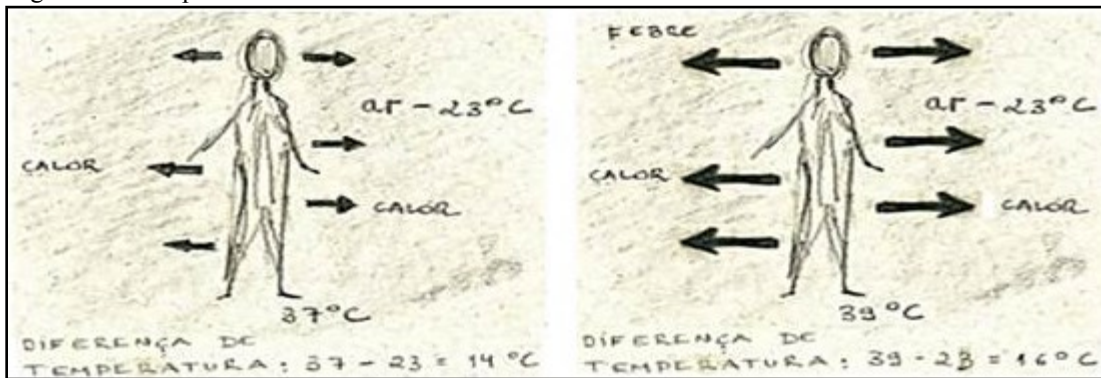 FEBRE
ar - 23°C
CALOR
CALOR
37°C
DIFERENÇA DE
TEMPERATURA: 37 - 23 = 14°C
ar - 23°C
CALOR
CALOR
39°C
DIFERENÇA DE
TEMPERATURA: 39 - 23 = 16°C